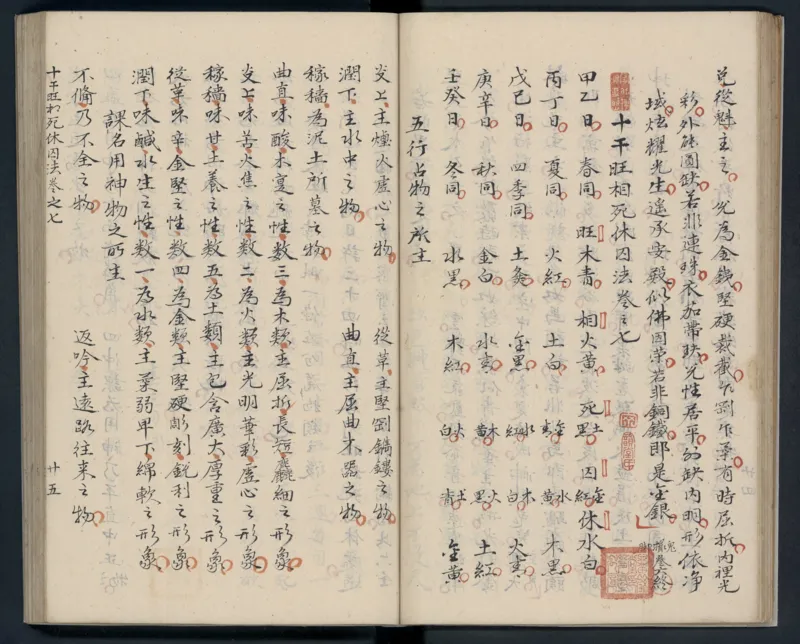 兌從魁主之允為金錢堅硬裁截乍劉乍藻有時屈折内裡光
彩外能圓缺若非連珠衣茄帶缺光性居平的缺内明形依净
域炫耀光生遙承安毅似佛因荣若非銅鐵郎是金銀
十干旺相死休囚法卷之七
甲乙日 春同 旺木青 相火黃 死土黑 囚金紅 休水白
丙丁日 夏同 火紅 土白 木黑
戊巳日 四季同 土
庚辛日 秋同 金白
壬癸日 冬同 水黑 木紅 金黃
五行占物之所主
炎上主爐火虛心之物 從革主堅剛鐫鏤之物
潤下主水中之物 曲直主屈曲木器之物
稼穡為泥土所墓之物
曲直味酸木之性數三為木類主屈折長短麤細之形象
炎上味苦火焦之性數二為火類主光明華彩虛心之形象
稼穡味甘土養之性數五為土類主包含廣大厚重之形象
從革味辛金堅之性數四為金類主堅硬彫刻鋭利之形象
潤下味鹹水生之性數一為水類主柔弱卑下綿軟之形象
課名用神物之所生
不備乃不全之物 返吟主遠路往来之物
十干旺相死休囚法卷之七 廿五